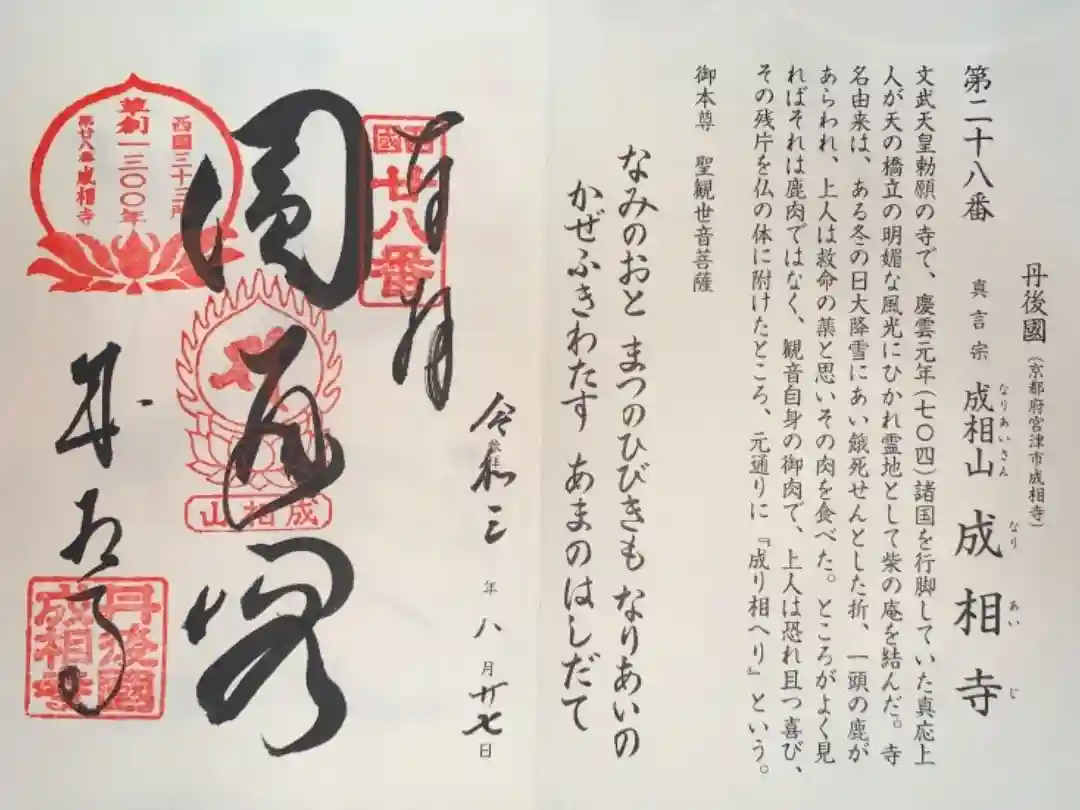 丹後國(京都府宮津市成相寺)
第二十八番 真言宗 成相山 成相寺
なりあいさん なりあいじ
文武天皇勅願の寺で、慶雲元年(七〇四)諸国を行脚していた真応上
人が天の橋立の明媚な風光にひかれ霊地として柴の庵を結んだ。寺
名由来は、ある冬の日大降雪にあい餓死せんとした折、一頭の鹿が
あらわれ、上人は救命の薬と思いその肉を食べた。ところがよく見
ればそれは鹿肉ではなく、観音自身の御肉で、上人は恐れ且つ喜び、
その残片を仏の体に附けたところ、元通りに『成り相へり』という。
御本尊 聖観世音菩薩
なみのおと まつのひびきも なりあいの
かぜふきわたす あまのはしだて
令和三年八月廿七日
参拝
奉拝
西國
廿八番
圓通閣
成相山
西国三十三所
草創一三〇〇年
第廿八番成相寺
成相寺
丹後國
成相寺